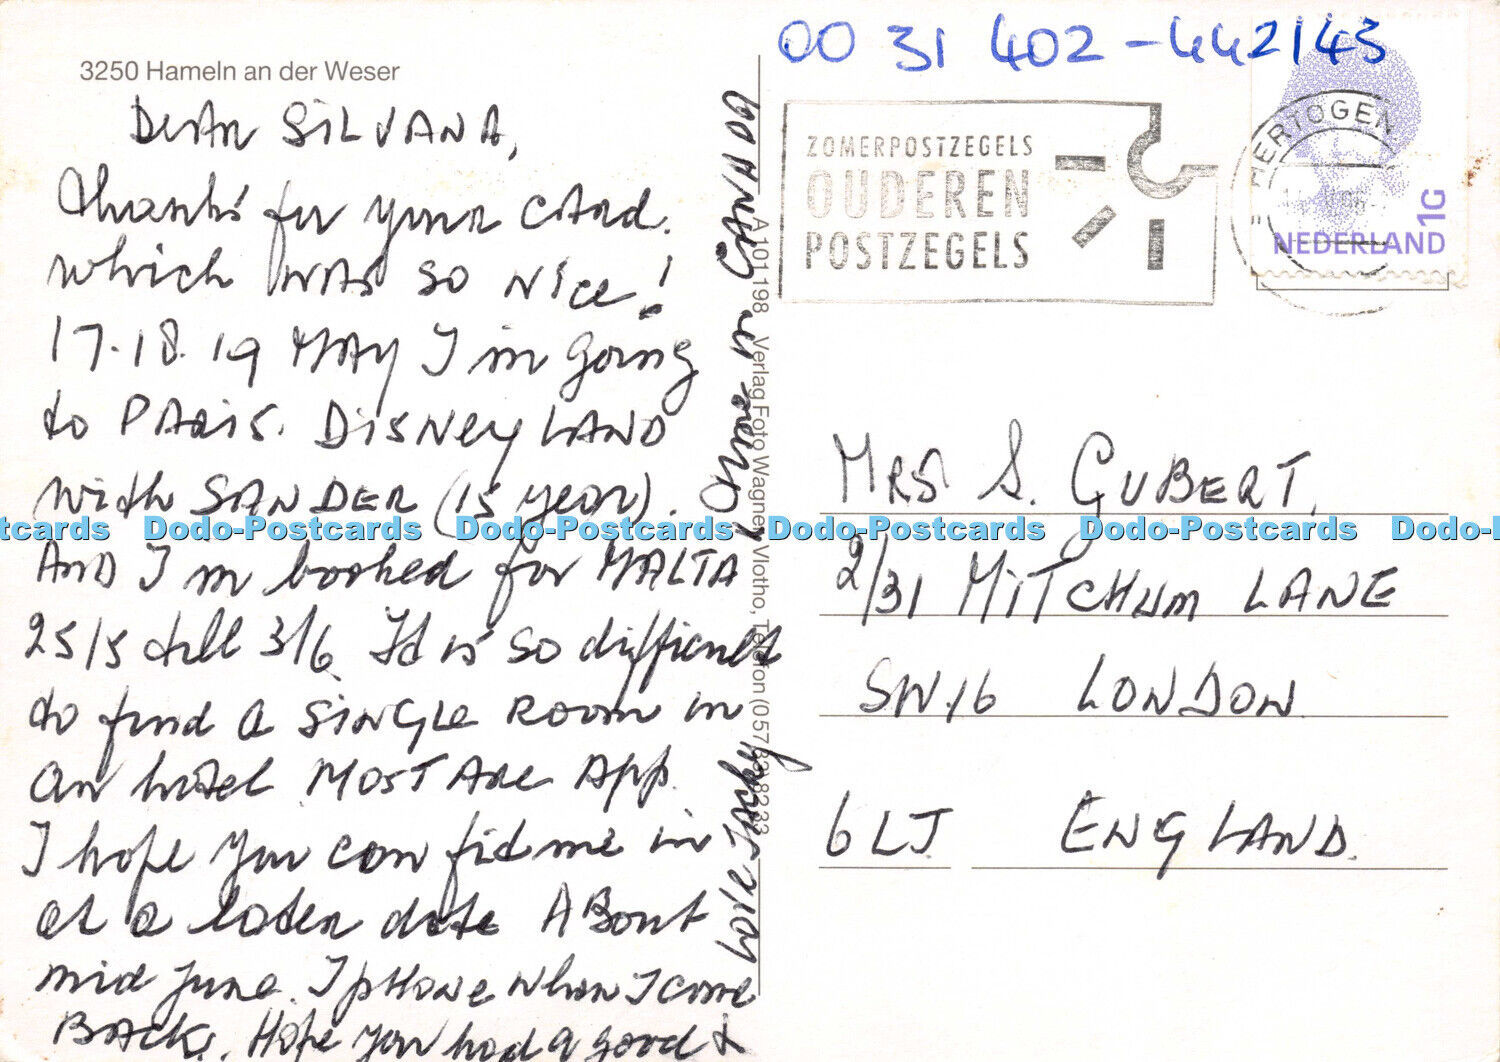 3250 Hameln an der Weser
DEAR SILVANA,
thanks for your CARD.
which WAS SO Nice!
17.18.19 MAY I'm going
to PARIS. DISNEYLAND
with SANDER (15 year).
AND I'm booked for MALTA
25/5 till 3/6. It is so difficult
to find a SINGLE ROOM in
an hotel. MOST ARE App.
I hope you can fid me in
at a later date ABout
mid June. I pHone when I come
BACK. Hope you had a good &
time in CANADA
love Jacky
A 101 198 Verlag Foto Wagner, Vlotho, Telefon (0 57 33) 8233
00 31 402-442143
ZOMERPOSTZEGELS
OUDEREN
POSTZEGELS
HERTOGEN
1G
NEDERLAND
MRS S. GUBERT,
2/31 MITCHUM LANE
SW.16 LONDON
6LJ ENGLAND.
Dodo-Postcards Dodo-Postcards Dodo-Postcards Dodo-Postcards